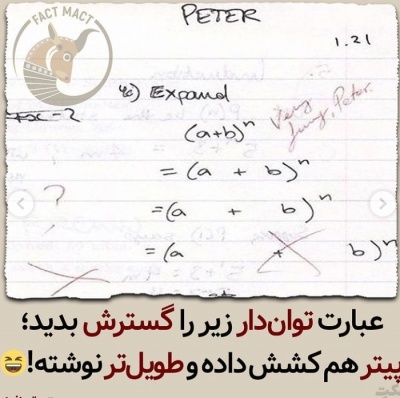 FACT MACT
PETER
1.21
4c) Expand
(a+b)ⁿ
Very funny, Peter.
= (a + b)ⁿ
?
=(a + b)ⁿ
= (a + b)ⁿ
عبارت توان‌دار زیر را گسترش بدید؛
پیتر هم کشش داده و طویل‌تر نوشته!😆